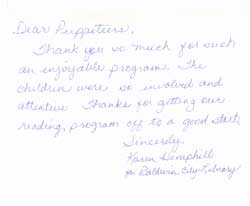 Dear Puppeteers,
Thank you so much for such
an enjoyable program. The
children were so involved and
attentive. Thanks for getting our
reading program off to a good start.
Sincerely,
Karen Hemphill
for Baldwin City Library